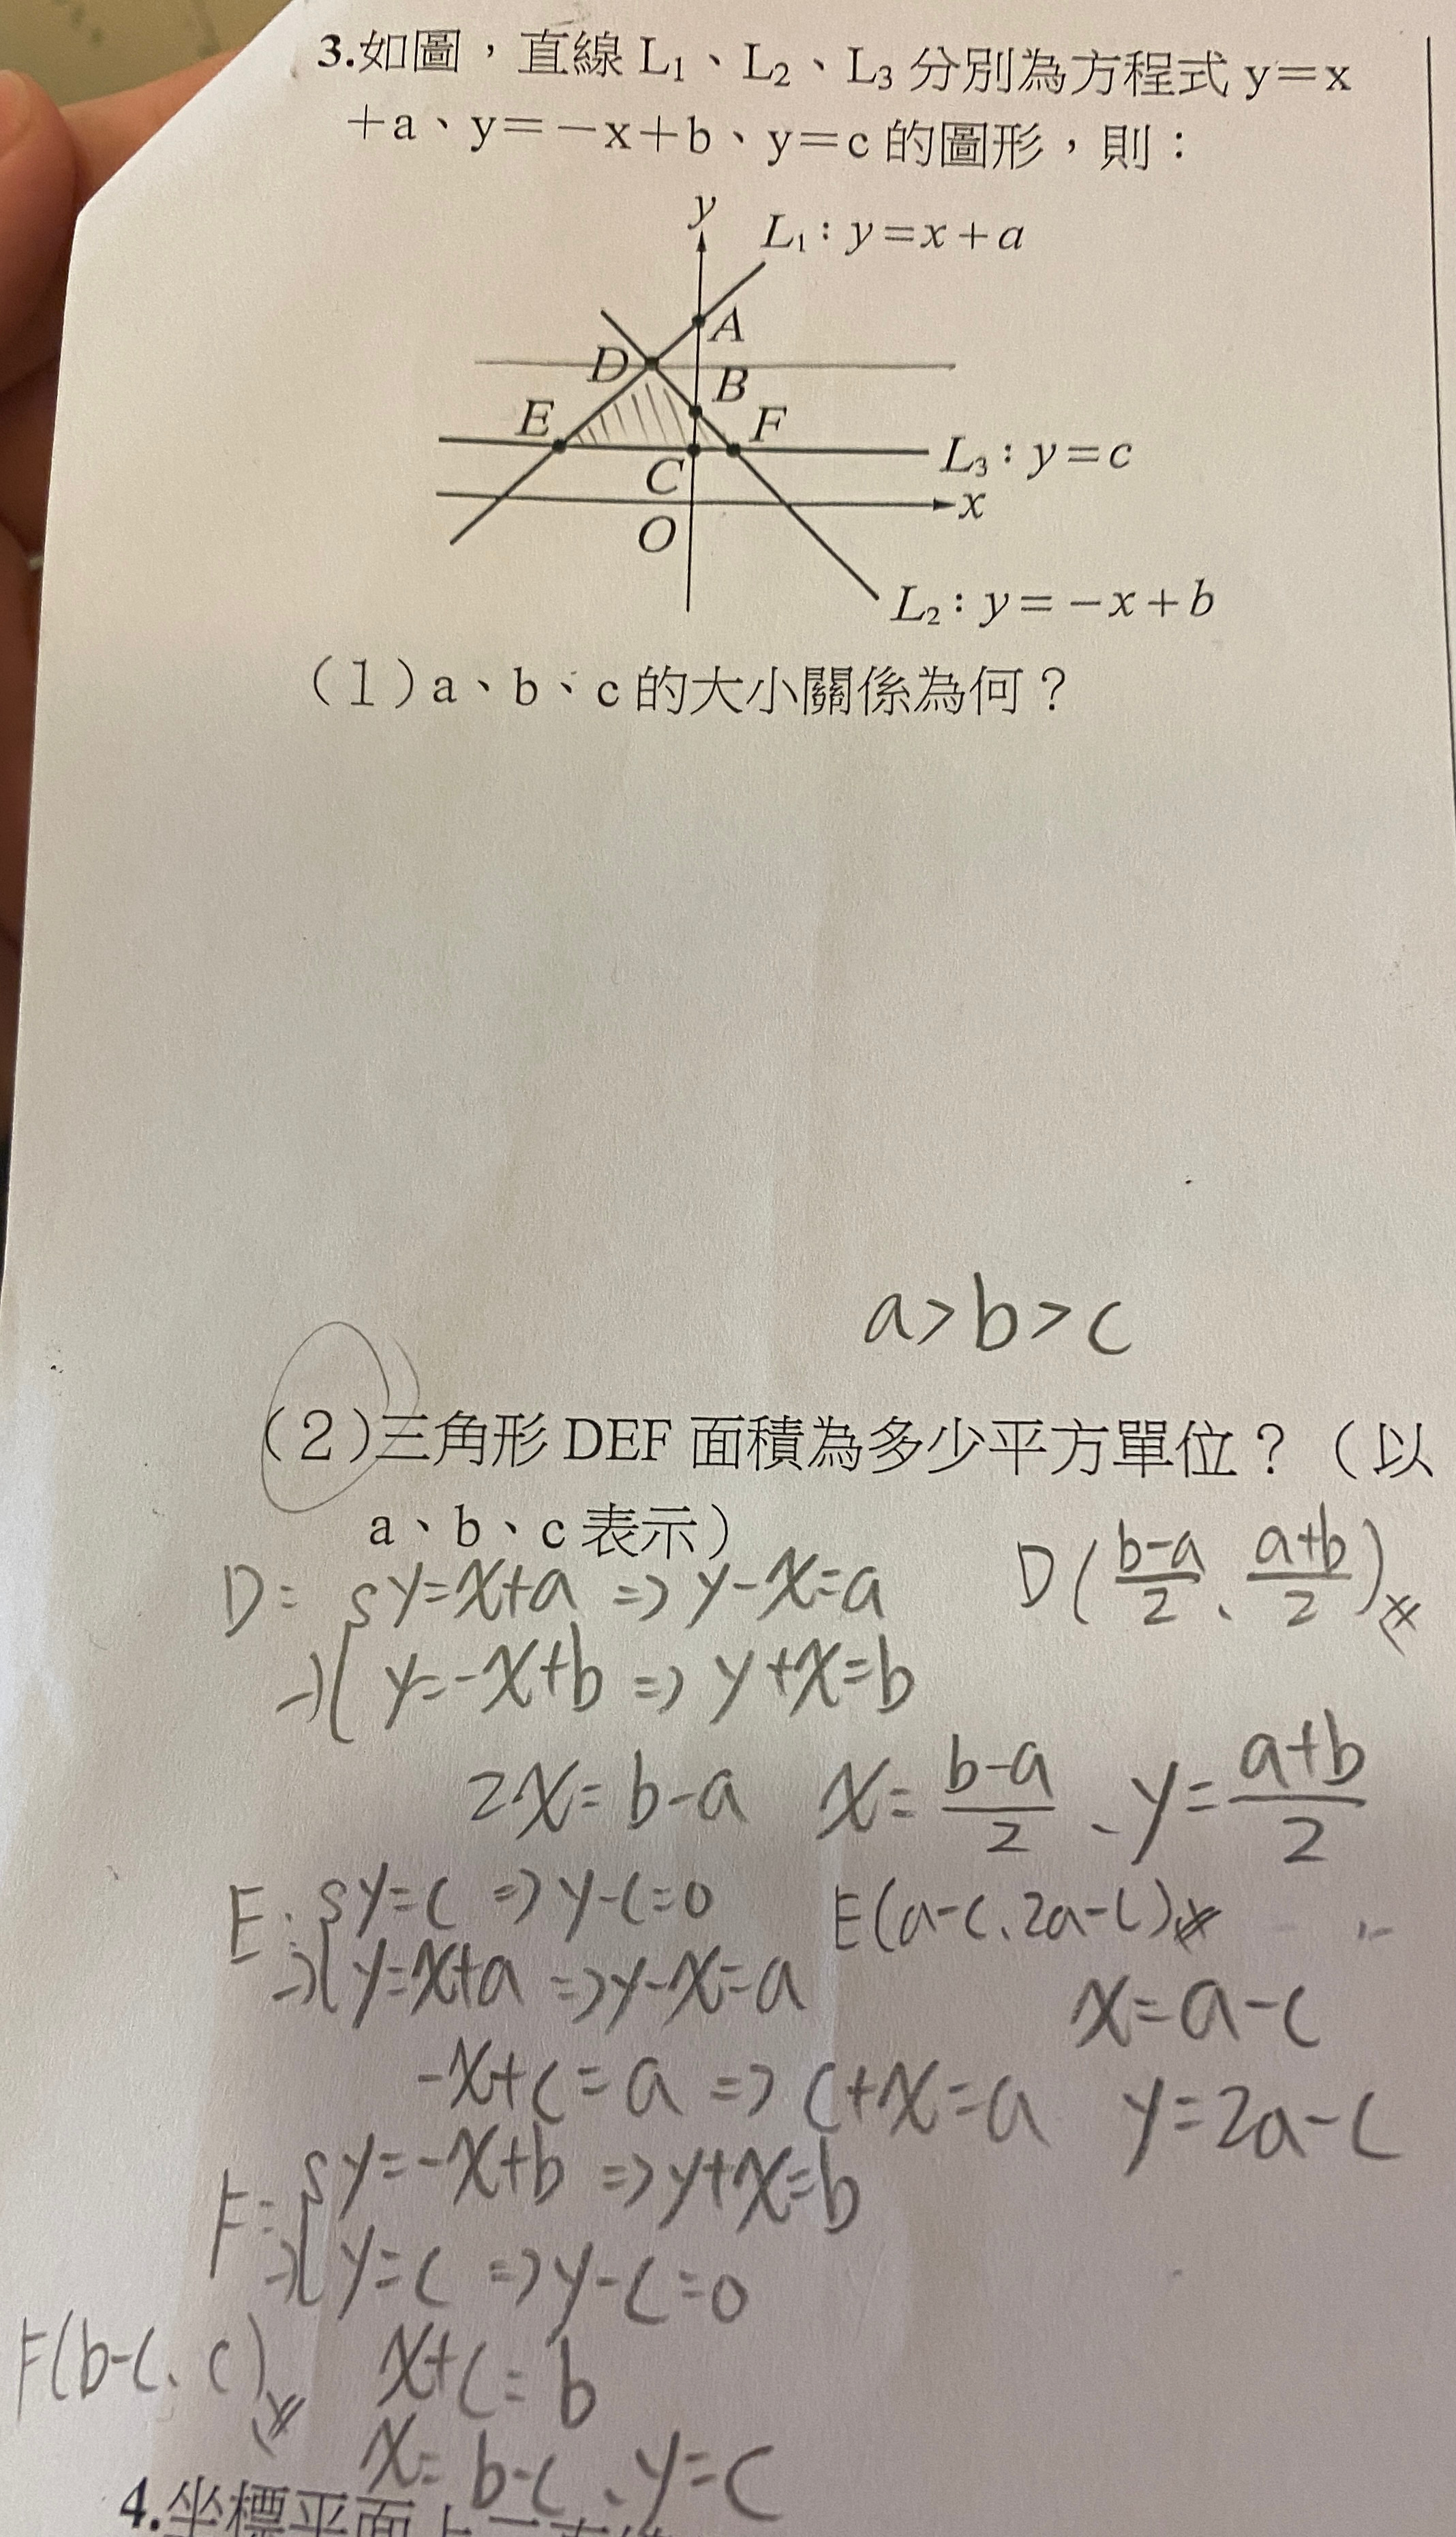 3.如圖，直線 L₁、L₂、L₃ 分別為方程式 y＝x
＋a、y＝－x＋b、y＝c 的圖形，則：
y
L₁：y＝x＋a
A
D
B
E
F
L₃：y＝c
C
x
O
L₂：y＝－x＋b
（1）a、b、c 的大小關係為何？
a>b>c
（2）三角形 DEF 面積為多少平方單位？（以
a、b、c 表示）
D= {y=x+a => y-x=a
D(b-a/2、a+b/2)
→{y=-x+b => y+x=b
2x=b-a x=b-a/2、y=a+b/2
E: {y=c => y-c=0
E(a-c、2a-c)
→{y=x+a => y-x=a
x=a-c
-x+c=a => c+x=a y=2a-c
F= {y=-x+b => y+x=b
→{y=c => y-c=0
F(b-c、c)
x+c=b
x=b-c、y=c
4.坐標平面上